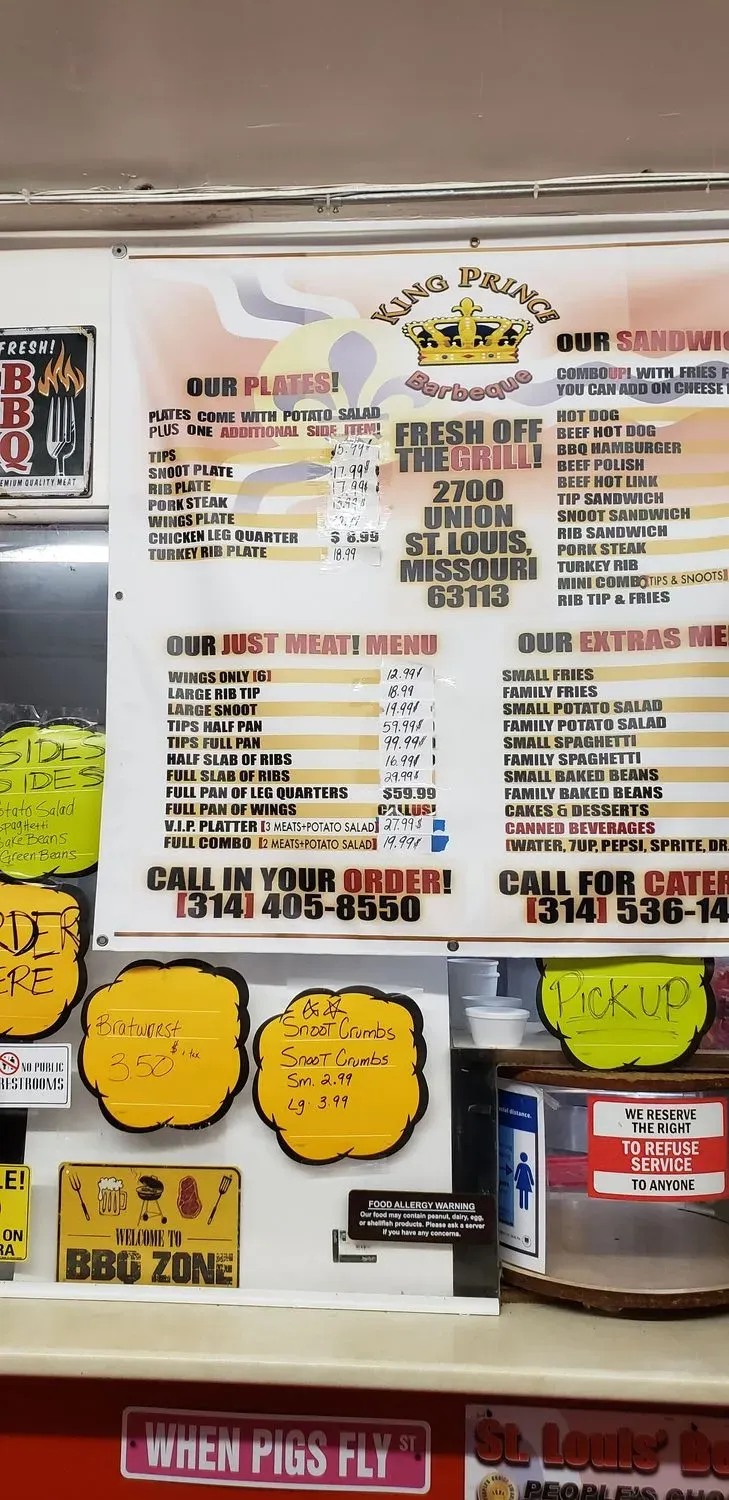 FRESH!
B
B
Q
EMIUM QUALITY MEAT
KING PRINCE
Barbeque
OUR PLATES!
PLATES COME WITH POTATO SALAD
PLUS ONE ADDITIONAL SIDE ITEM!
TIPS 15.99¢
SNOOT PLATE 17.99¢
RIB PLATE 17.99¢
PORK STEAK
WINGS PLATE
CHICKEN LEG QUARTER $ 8.99
TURKEY RIB PLATE 18.99
FRESH OFF
THE GRILL!
2700
UNION
ST. LOUIS,
MISSOURI
63113
OUR SANDWIC
COMBO UP! WITH FRIES F
YOU CAN ADD ON CHEESE
HOT DOG
BEEF HOT DOG
BBQ HAMBURGER
BEEF POLISH
BEEF HOT LINK
TIP SANDWICH
SNOOT SANDWICH
RIB SANDWICH
PORK STEAK
TURKEY RIB
MINI COMBO [TIPS & SNOOTS]
RIB TIP & FRIES
OUR JUST MEAT! MENU
WINGS ONLY [6] 12.99¢
LARGE RIB TIP 18.99
LARGE SNOOT 19.99¢
TIPS HALF PAN 59.99¢
TIPS FULL PAN 99.99¢
HALF SLAB OF RIBS 16.99¢
FULL SLAB OF RIBS 29.99¢
FULL PAN OF LEG QUARTERS $59.99
FULL PAN OF WINGS CALL US!
V.I.P. PLATTER [3 MEATS+POTATO SALAD] 27.99¢
FULL COMBO [2 MEATS+POTATO SALAD] 19.99¢
OUR EXTRAS ME
SMALL FRIES
FAMILY FRIES
SMALL POTATO SALAD
FAMILY POTATO SALAD
SMALL SPAGHETTI
FAMILY SPAGHETTI
SMALL BAKED BEANS
FAMILY BAKED BEANS
CAKES & DESSERTS
CANNED BEVERAGES
[WATER, 7UP, PEPSI, SPRITE, DR.
CALL IN YOUR ORDER!
[314] 405-8550
CALL FOR CATER
[314] 536-14
SIDES
SIDES
otato Salad
spaghetti
Bake Beans
Green Beans
RDER
ERE
NO PUBLIC
RESTROOMS
Bratwurst
3.50 $ + tax
Snoot Crumbs
Snoot Crumbs
Sm. 2.99
Lg. 3.99
PICK UP
ial distance.
WE RESERVE
THE RIGHT
TO REFUSE
SERVICE
TO ANYONE
FOOD ALLERGY WARNING
Our food may contain peanut, dairy, egg,
or shellfish products. Please ask a server
if you have any concerns.
LE!
ON
RA
WELCOME TO
BBQ ZONE
WHEN PIGS FLY ST
St. Louis' Be
PEOPLE'S CHO